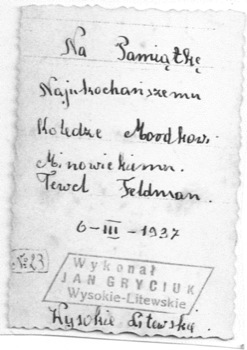 Na Pamiątkę
Najukochańszemu
Koledze Mordkowi
Minowickiemu.
Tewel Feldman.
6-III-1937
№ 23
Wykonał
JAN GRYCIUK
Wysokie-Litewskie
Wysokie Litewskie.